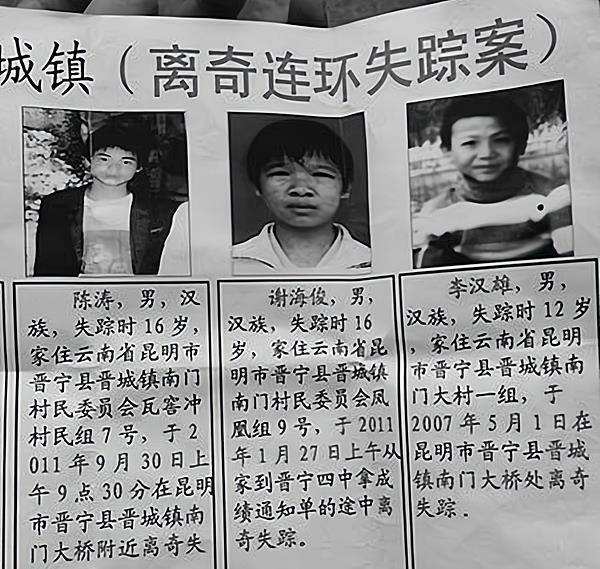 城镇（离奇连环失踪案）
陈涛，男，汉
族，失踪时16岁，
家住云南省昆明市
晋宁县晋城镇南门
村民委员会瓦窑冲
村民组7号，于2
011年9月30日上
午9点30分在昆明
市晋宁县晋城镇南
门大桥附近离奇失
谢海俊，男，
汉族，失踪时16
岁，家住云南省昆
明市晋宁县晋城镇
南门村民委员会凤
凰组9号，于2011
年1月27日上午从
家到晋宁四中拿成
绩通知单的途中离
奇失踪。
李汉雄，男，
汉族，失踪时12岁
，家住云南省昆明
市晋宁县晋城镇南
门大村一组，于
2007年5月1日在
昆明市晋宁县晋城
镇南门大桥处离奇
失踪。